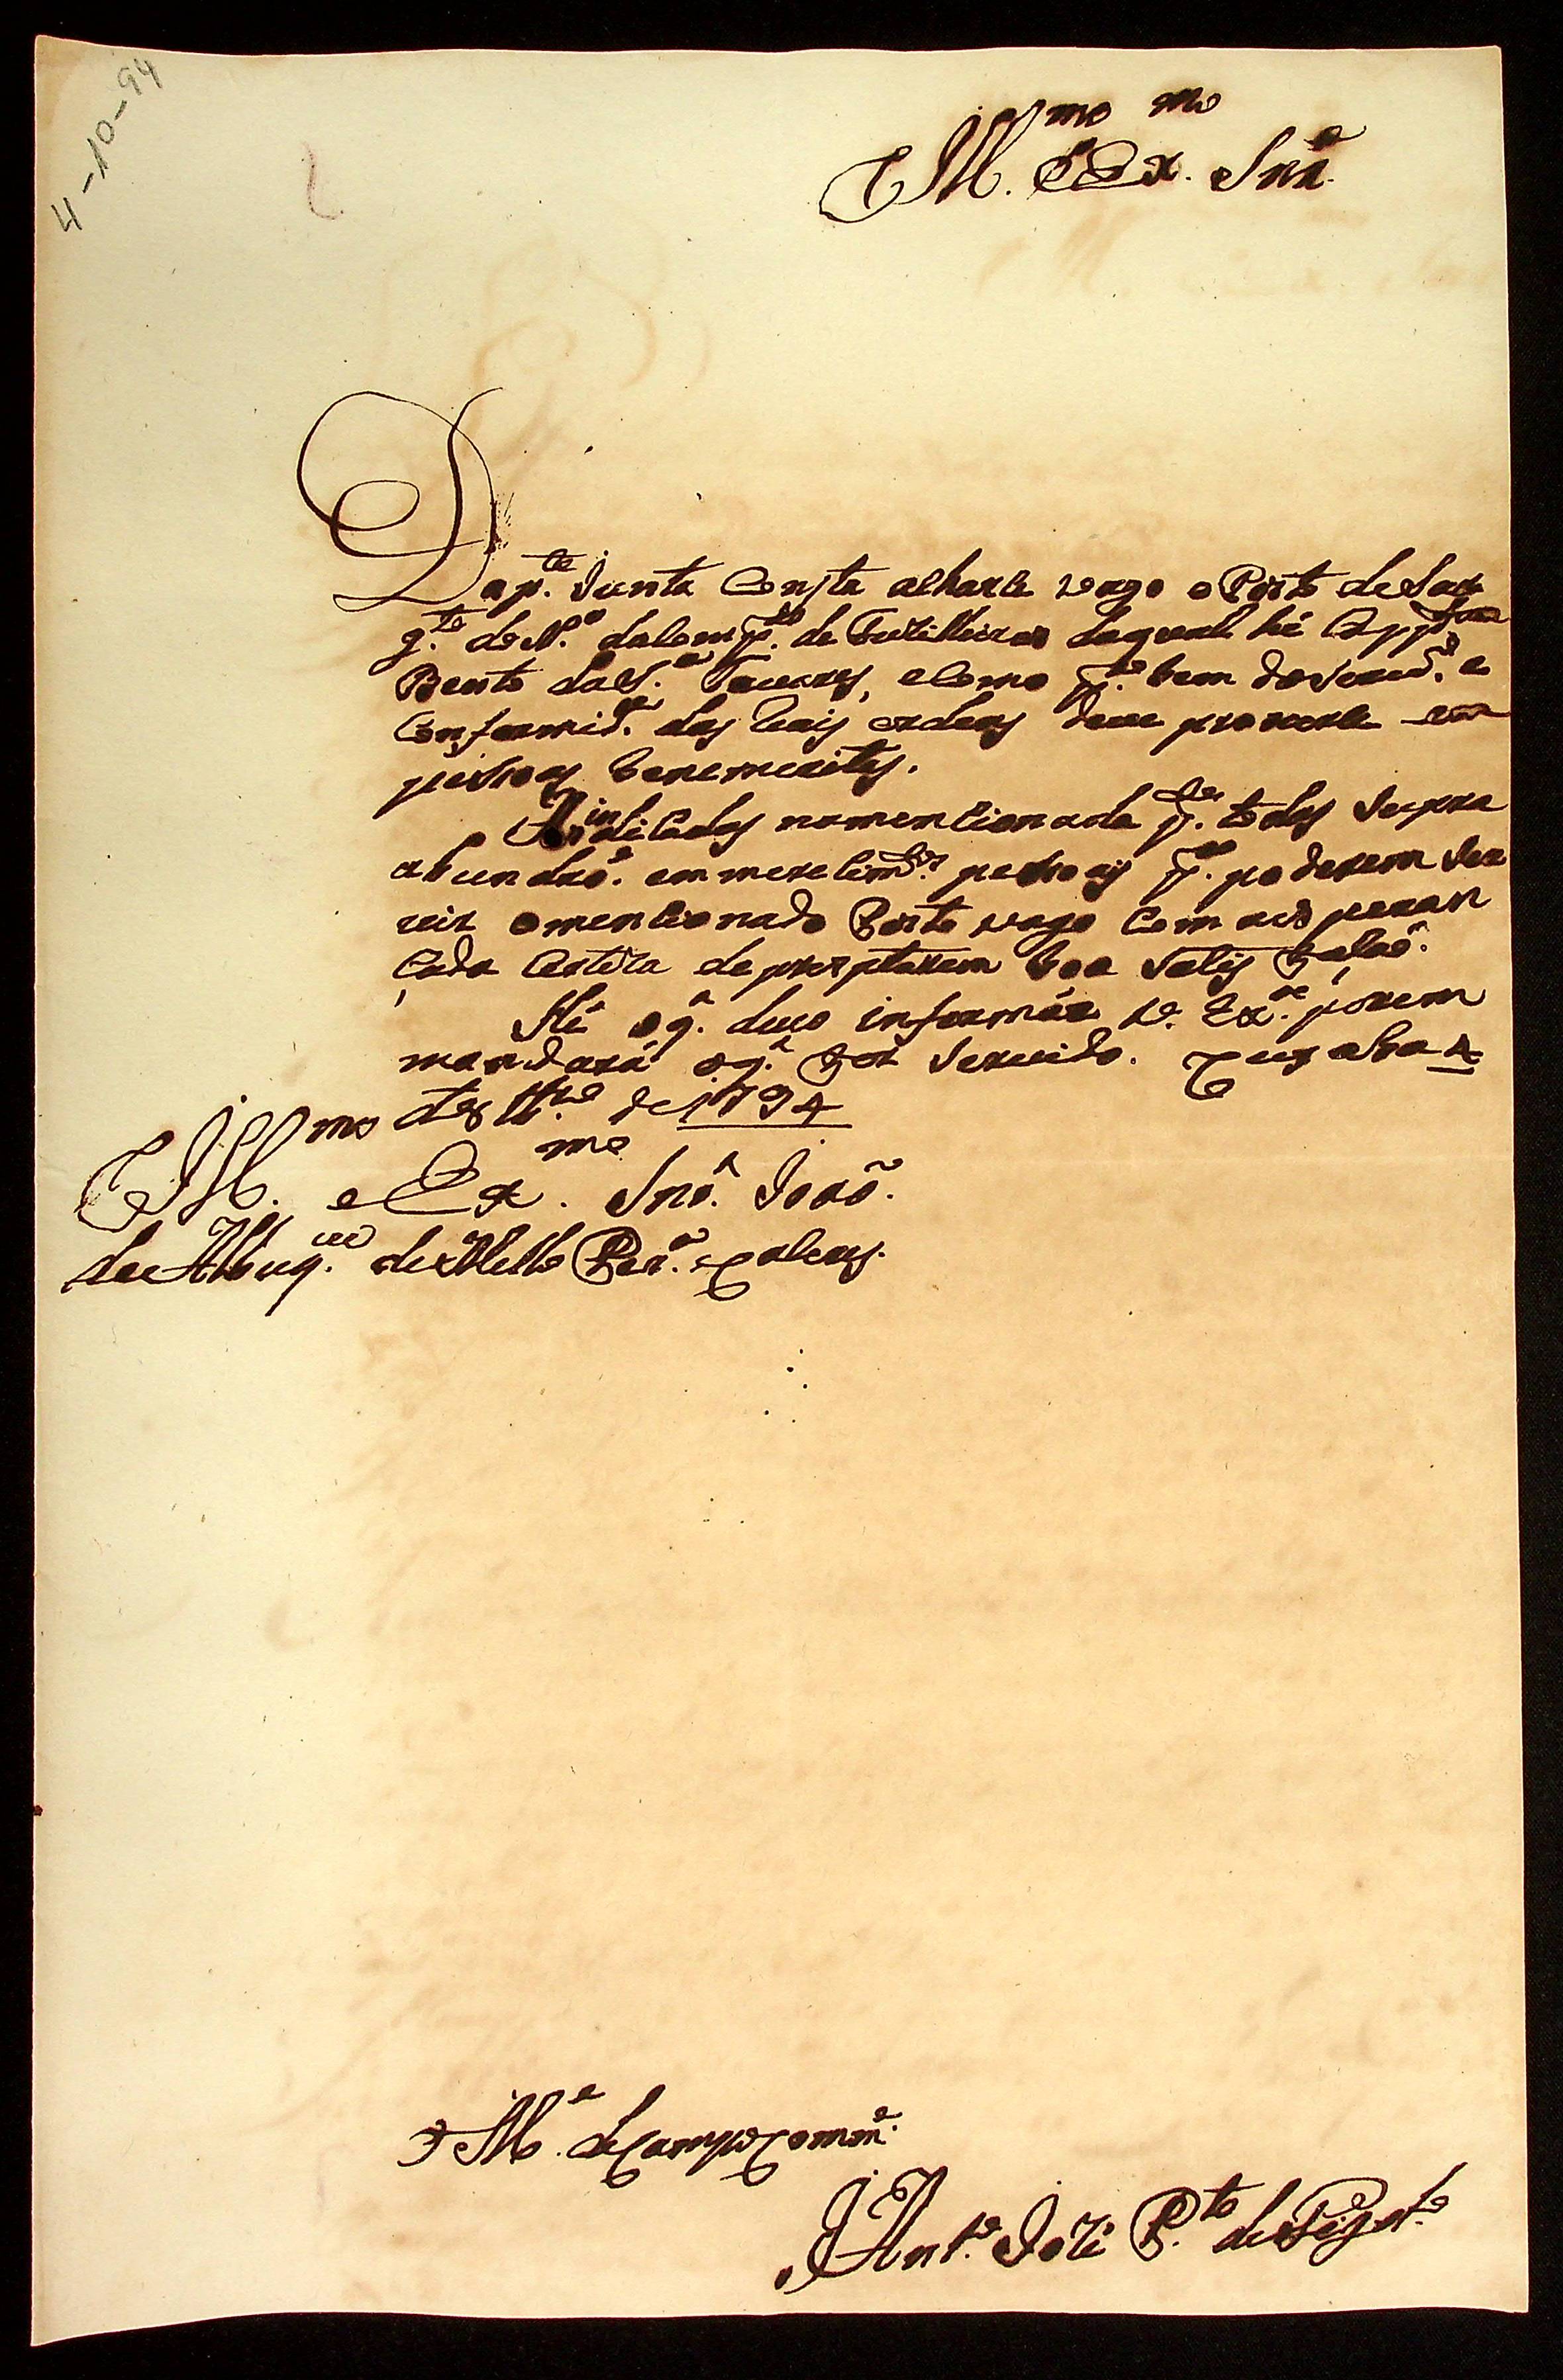 4-10-94
Ill.mo Ex.mo Snr.
Da p.te junta Consta acharse vago o Posto de Sar
g.to do N.o da Comp.a de Fuzilleiros da qual hé Capp.am
Bento da S.a Tavares, e como p.a bem do Serv.o e
Conformid.e das Reais ordens deve proverse em
pessoas benemeritas.
Indicados na mencionada p.te todos Supra
abundaõ. em merecim.tos pessoais p.a poderem Ser
vir o mencionado Posto vago Com as esperan
ças Certeza de prestarem boa Satisfaçaõ.
Hé o q̂. devo informár V. Ex.a porem
mandará o q̂. for Servido. Cuyaba 4
de 8br.o de 1794
Ill.mo e Ex.mo Snr. Joaõ.
de Albuq.ue de Mello Per.a e Caceres.
M.e de Campo Comm.e
Ant.o Jozé P.to de Figd.o